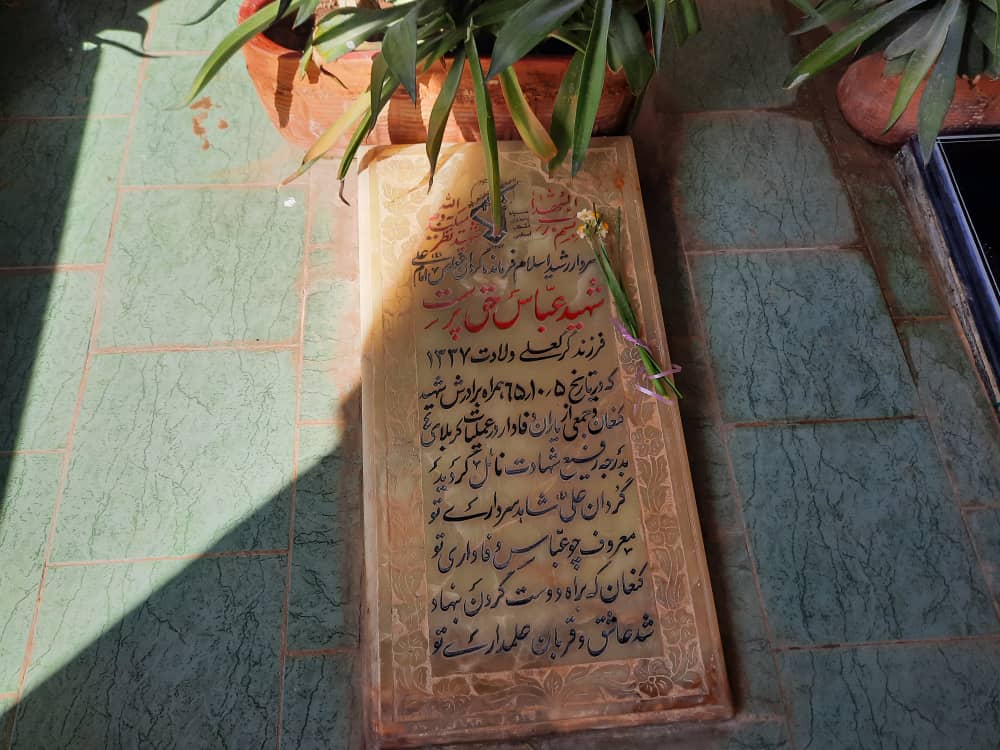 بسم رب الشهدا
شهید نظر میکند به وجه الله
سردار رشید اسلام فرمانده گردان غواص امام علی
شهید عباس حق پرست
فرزند کربعلی ولادت ۱۳۳۷
که در تاریخ ۶۵٫۱۰٫۵ همراه برادرش شهید
کنعان و جمعی از یاران وفادار در عملیات کربلای
بدرجه رفیع شهادت نائل گردید
گردان علی شاهد سرداری تو
معروف چو عباس وفاداری تو
کنعان که براه دوست گردن بنهاد
شد عاشق و قربان علمداری تو